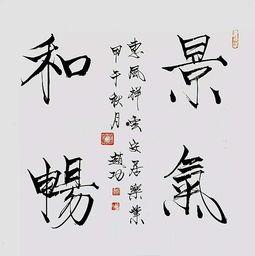 景氣
和暢
惠風祥雲安居樂業
甲午秋月
趙功